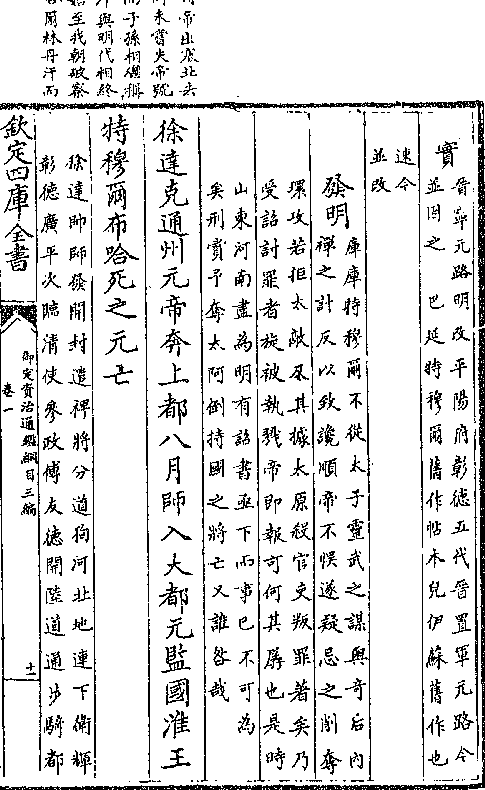 帝出塞北去
未嘗失帝號
子孫相繼稱
與明代相終
至我朝破察
爾林丹汗而
實
晉寧元路明改平陽府彰德五代晉置軍元路今
並因之 巴延特穆爾舊作帖木兒伊蘇舊作也
速今
並改
發明
庫庫特穆爾不從太子靈武之謀與奇后內
禪之計反以致讒順帝不悞遂疑忌之削奪
環攻若拒太敵及其據太原殺官吏叛罪著矣乃
受詔討罪者旋被執戮帝即報可何其孱也是時
山東河南盡為明有詔書亟下而事已不可為
矣刑賞予奪太阿倒持國之將亡又誰咎哉
徐達克通州元帝奔上都八月師入大都元監國淮王
特穆爾布哈死之元亡
徐達帥師發開封遣裨將分道狥河北地連下衛輝
彰德廣平次臨清使參政傅友德開陸道通步騎都
欽定四庫全書
御定資治通鑑綱目三編
卷一
十二